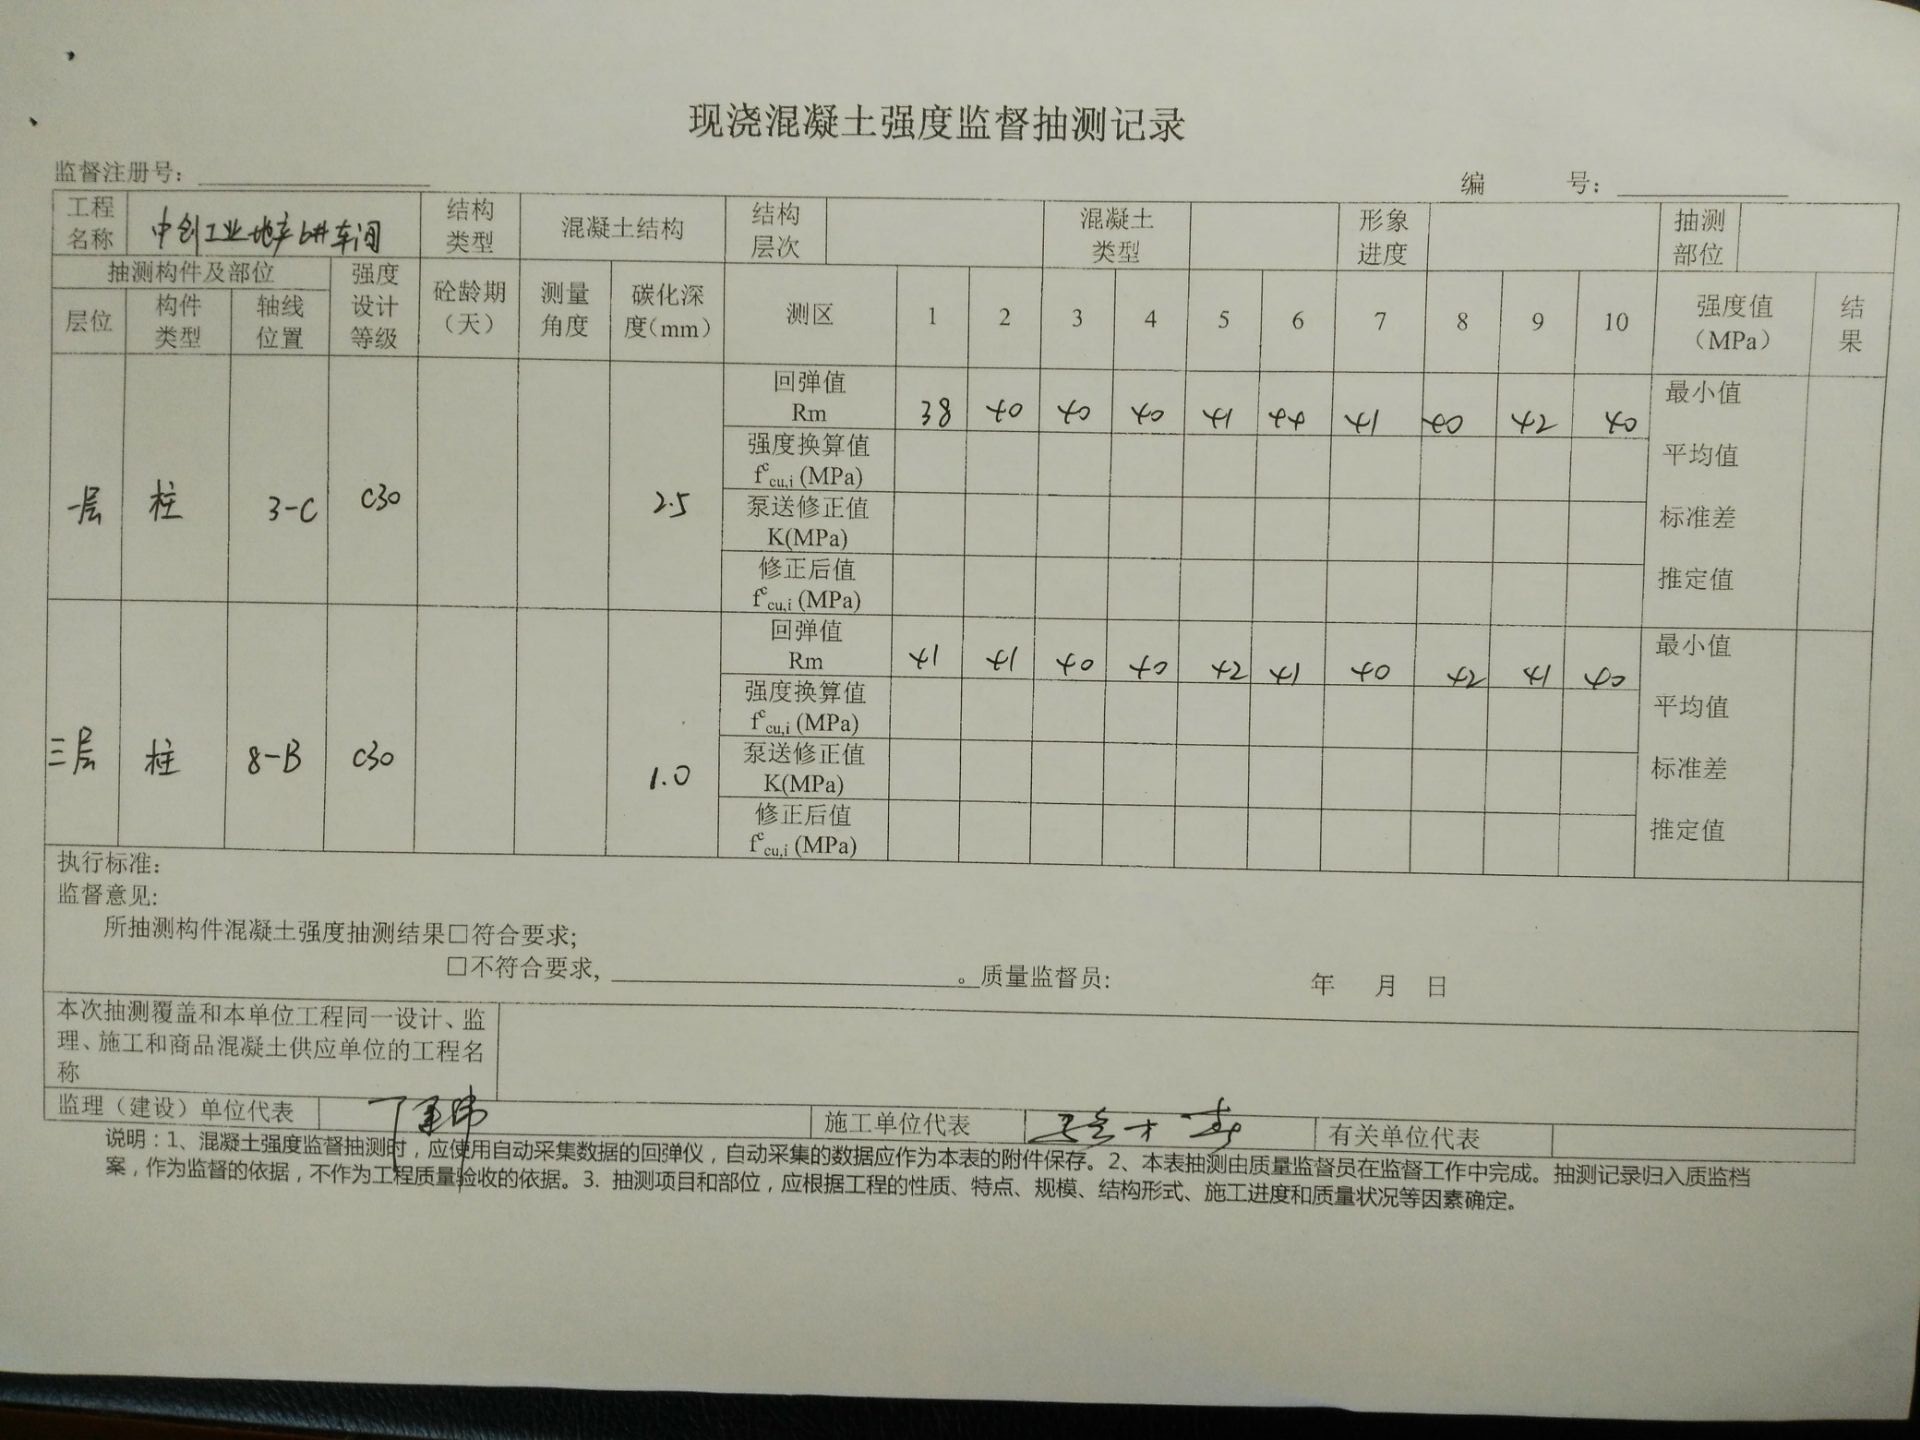 现浇混凝土强度监督抽测记录
监督注册号：
编 号：
工程名称 中创工业地产6#车间 结构类型 混凝土结构 结构层次 混凝土类型 形象进度 抽测部位
抽测构件及部位 强度设计等级 砼龄期（天） 测量角度 碳化深度(mm) 测区 1 2 3 4 5 6 7 8 9 10 强度值（MPa） 结果
层位 构件类型 轴线位置
回弹值 Rm 38 40 40 40 41 44 41 40 42 40 最小值
强度换算值 fᶜcu,i (MPa) 平均值
一层 柱 3-C C30 2.5
泵送修正值 K(MPa) 标准差
修正后值 fᶜcu,i (MPa) 推定值
回弹值 Rm 41 41 40 40 42 41 40 42 41 40 最小值
强度换算值 fᶜcu,i (MPa) 平均值
三层 柱 8-B C30 1.0
泵送修正值 K(MPa) 标准差
修正后值 fᶜcu,i (MPa) 推定值
执行标准：
监督意见:
所抽测构件混凝土强度抽测结果□符合要求;
□不符合要求, 。质量监督员: 年 月 日
本次抽测覆盖和本单位工程同一设计、监
理、施工和商品混凝土供应单位的工程名
称
监理（建设）单位代表 施工单位代表 有关单位代表
说明：1、混凝土强度监督抽测时，应使用自动采集数据的回弹仪，自动采集的数据应作为本表的附件保存。2、本表抽测由质量监督员在监督工作中完成。抽测记录归入质监档
案，作为监督的依据，不作为工程质量验收的依据。3. 抽测项目和部位，应根据工程的性质、特点、规模、结构形式、施工进度和质量状况等因素确定。